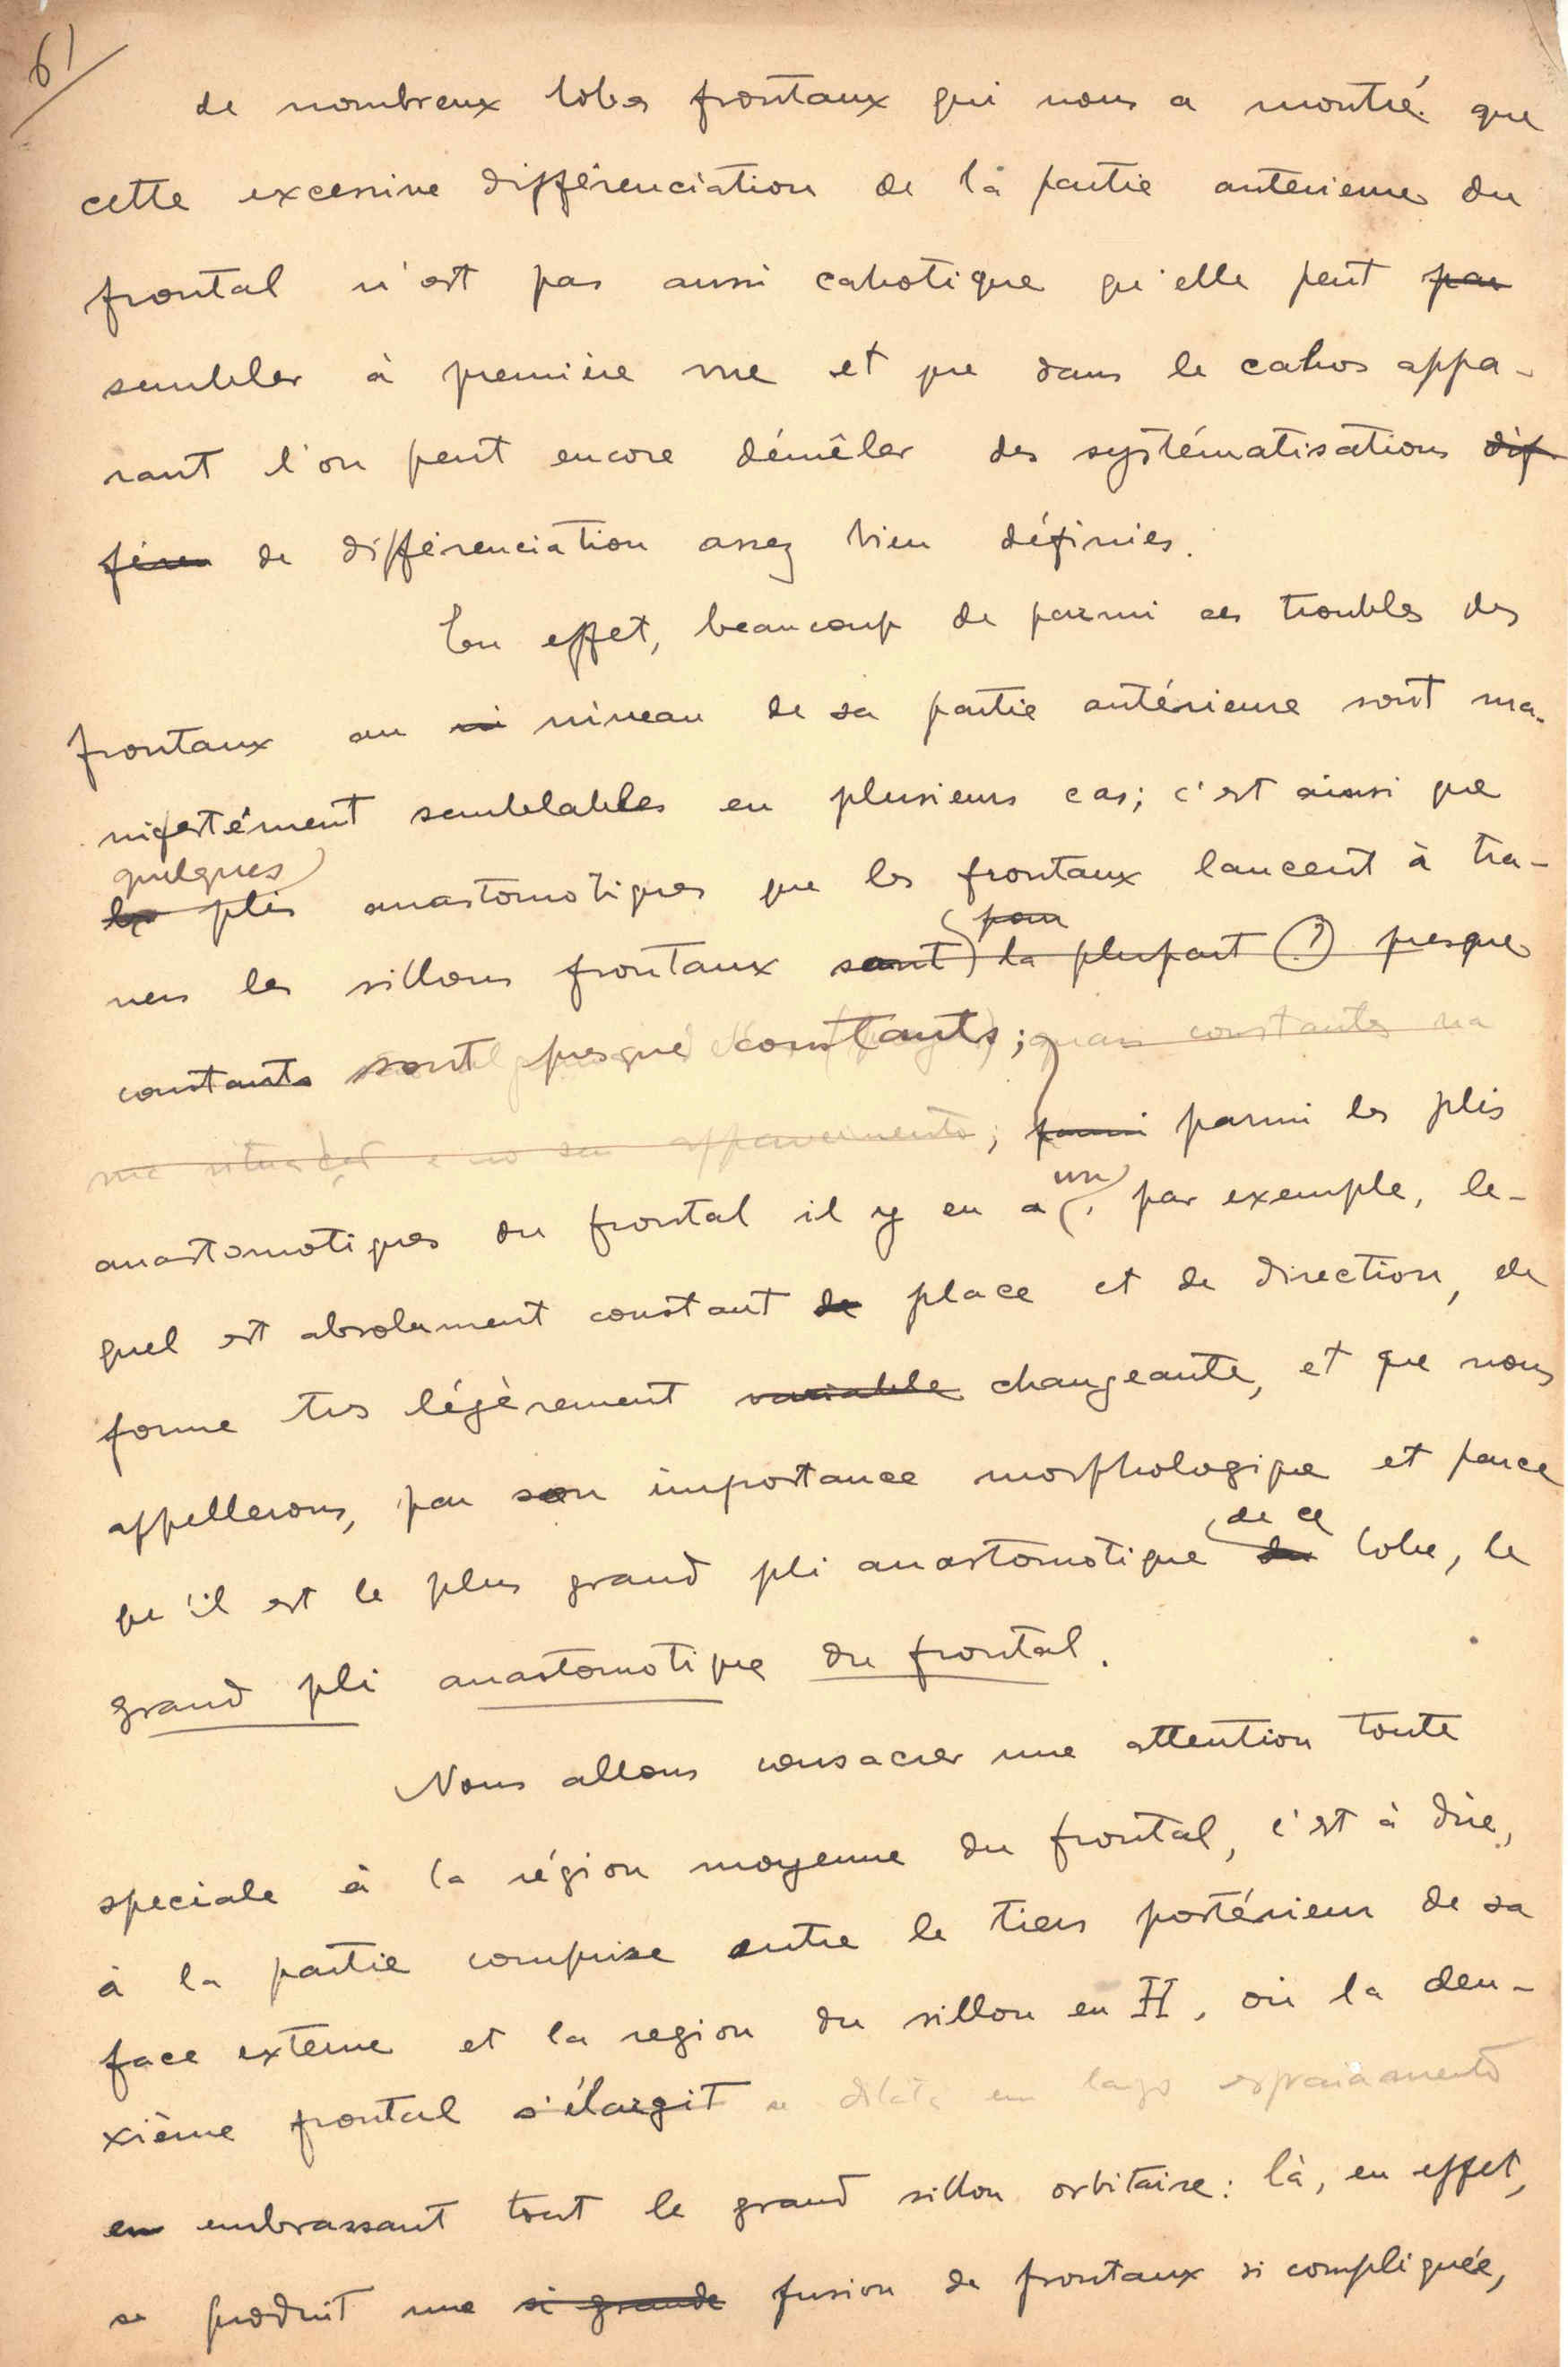 61
de nombreux lobes frontaux qui nous a montré que
cette excessive différenciation de la partie anterieure du
frontal n'est pas aussi cahotique qu'elle peut par
sembler à première vue et que dans le cahos appa-
rant l'on peut encore démêler des systématisations dif
féren de différenciation assez bien définies.
En effet, beaucoup de parmi ces troubles des
frontaux au ni niveau de sa partie antérieure sont ma-
nifestément semblables en plusieurs cas; c'est ainsi que
quelques
les plis anastomotiques que les frontaux lancent à tra-
pour
vers les sillons frontaux sont la plupart (?) presque
constants sont presque constants; quasi constantes na
apparecimento; parmi parmi les plis
un
anastomotiques du frontal il y en a, par exemple, le-
quel est absolument constant de place et de direction, de
forme tres légèrement variable changeante, et que nous
appellerons, par son importance morphologique et parce
de ce
qu'il est le plus grand pli anastomotique du lobe, le
grand pli anastomotique du frontal.
Nous allons consacrer une attention toute
speciale à la région moyenne du frontal, c'est à dire,
à la partie comprise entre le tiers postérieur de sa
face externe et la region du sillon en H, où la deu-
xième frontal s'élargit se dilata em largo espraiamento
en embrassant tout le grand sillon orbitaire: là, en effet,
se produit une si grande fusion de frontaux si compliquée,